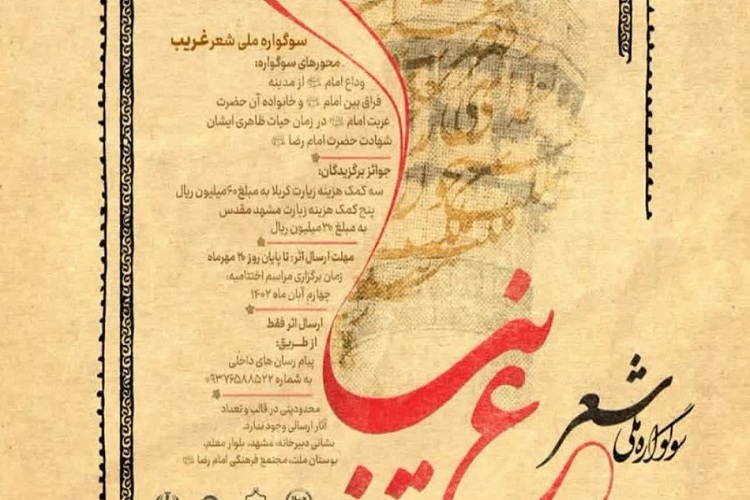 سوگواره ملی شعر غریب
محورهای سوگواره:
وداع امام از مدینه
فراق بین امام و خانواده آن حضرت
غربت امام در زمان حیات ظاهری ایشان
شهادت حضرت امام رضا
جوائز برگزیدگان:
سه کمک هزینه زیارت کربلا به مبلغ ۶۰ میلیون ریال
پنج کمک هزینه زیارت مشهد مقدس
به مبلغ ۳۰ میلیون ریال
مهلت ارسال اثر: تا پایان روز ۲۰ مهرماه
زمان برگزاری مراسم اختتامیه:
چهارم آبان ماه ۱۴۰۲
ارسال اثر فقط
از طــریق:
پیام رسان های داخلی
به شماره ۰۹۳۷۶۵۸۸۵۲۲
محدودیتی در قالب و تعداد
آثار ارسالی وجود ندارد.
نشانی دبیرخانه: مشهد، بلوار معلم،
بوستان ملت، مجتمع فرهنگی امام رضا
غریب
سوگواره ملی
شعر